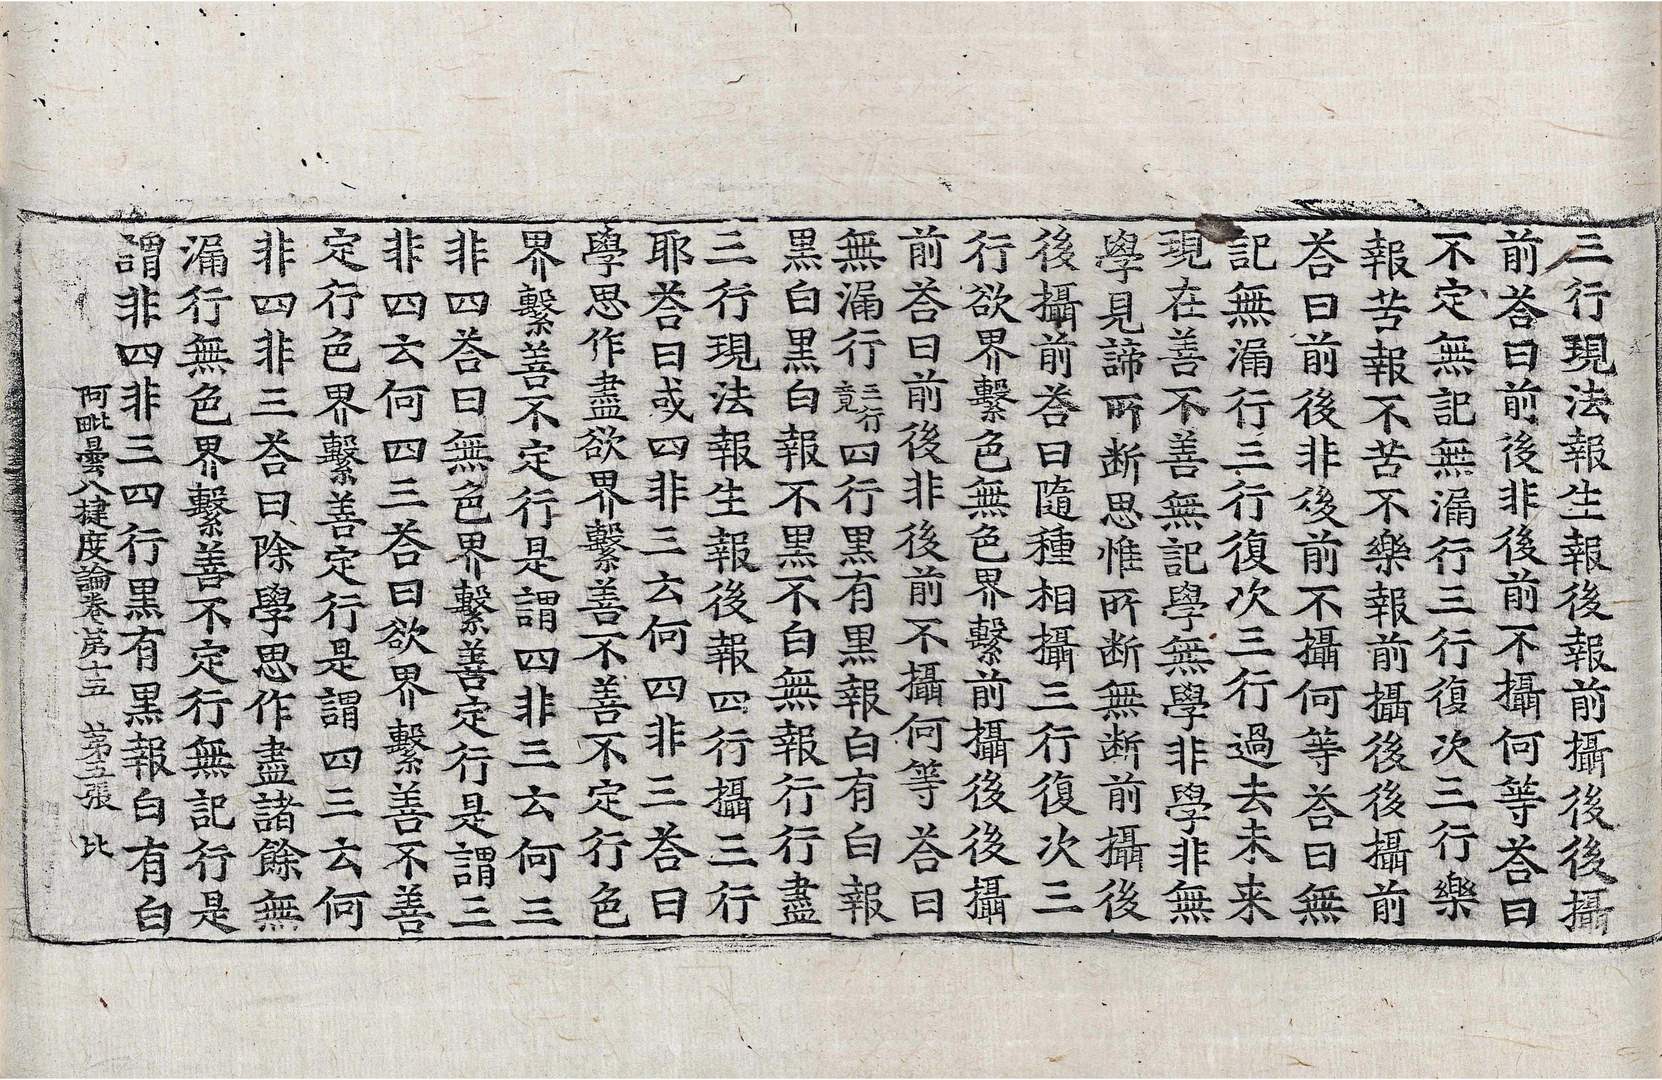 三行現法報生報後報前攝後後攝
前荅曰前後非後前不攝何等荅曰
不定無記無漏行三行復次三行樂
報苦報不苦不樂報前攝後後攝前
荅曰前後非後前不攝何等荅曰無
記無漏行三行復次三行過去未来
現在善不善無記學無學非學非無
學見諦所断思惟所断無断前攝後
後攝前荅曰隨種相攝三行復次三
行欲界繫色無色界繫前攝後後攝
前荅曰前後非後前不攝何等荅曰
無漏行三行竟四行黒有黒報白有白報
黒白黒白報不黒不白無報行行盡
三行現法報生報後報四行攝三行
耶荅曰或四非三云何四非三荅曰
學思作盡欲界繫善不善不定行色
界繫善不定行是謂四非三云何三
非四荅曰無色界繫善定行是謂三
非四云何四三荅曰欲界繫善不善
定行色界繫善定行是謂四三云何
非四非三荅曰除學思作盡諸餘無
漏行無色界繫善不定行無記行是
謂非四非三四行黒有黒報白有白
阿毗曇八揵度論卷第十五　第五張　比